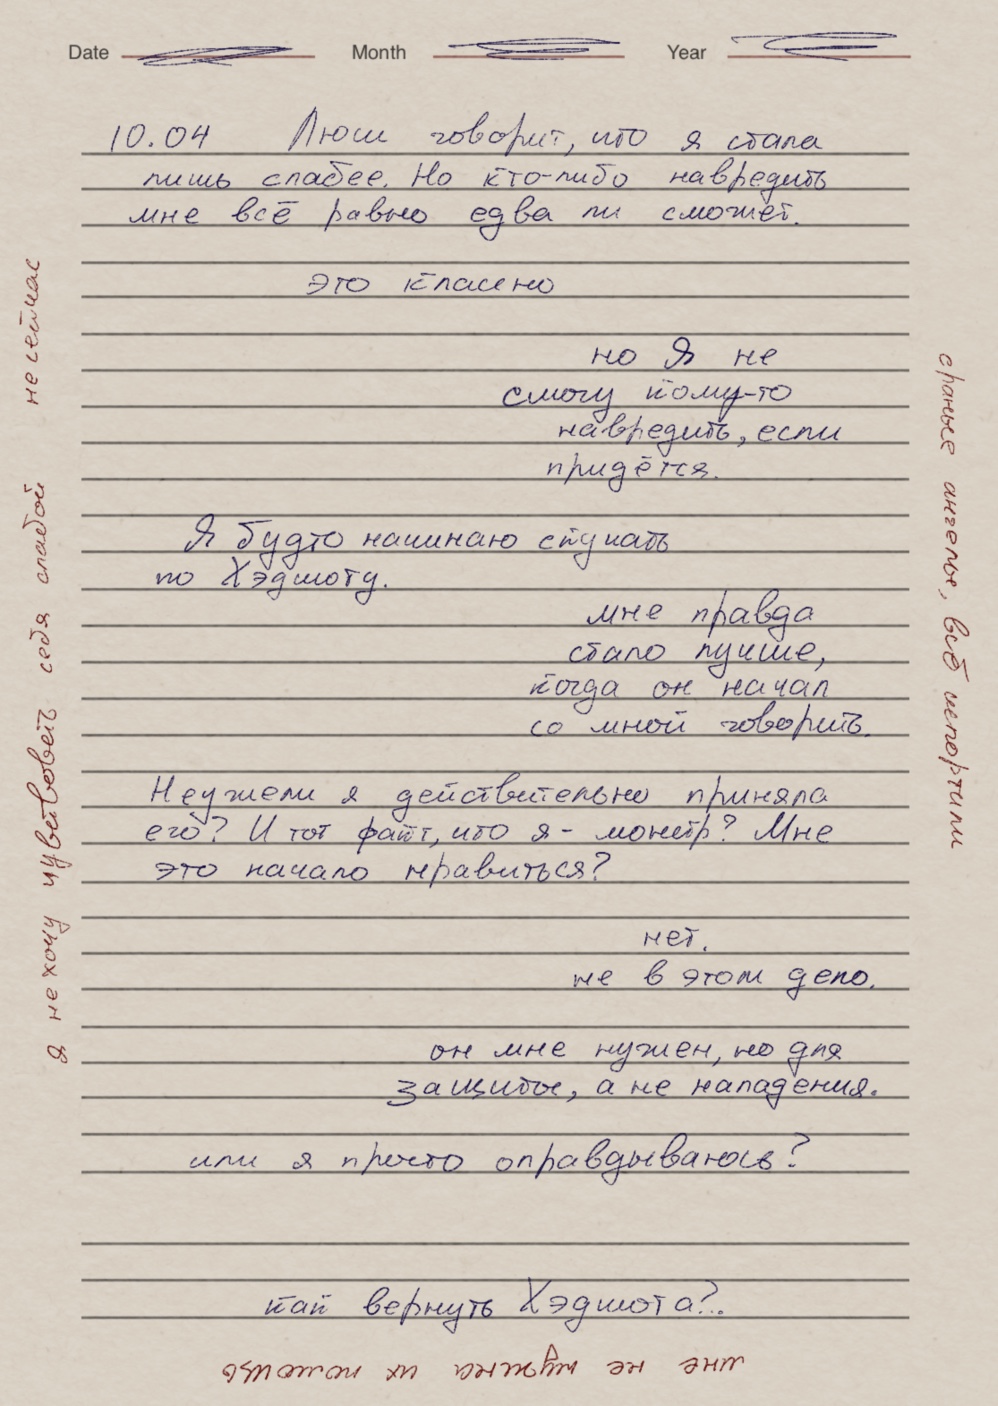 Date Month Year
10.04 Люси говорит, что я стала
лишь слабее. Но кто-либо навредить
мне всё равно едва ли сможет.
это классно
но Я не
смогу кому-то
навредить, если
придётся.
Я будто начинаю скучать
по Хэдшоту.
мне правда
стало лучше,
когда он начал
со мной говорить.
Неужели я действительно приняла
его? И тот факт, что я - монстр? Мне
это начало нравиться?
нет.
не в этом дело.
он мне нужен, но для
защиты, а не нападения.
или я просто оправдываюсь?
как вернуть Хэдшота?..
мне не нужна их помощь
я не хочу чувствовать себя слабой не сейчас
сраные ангелы, всё испортили